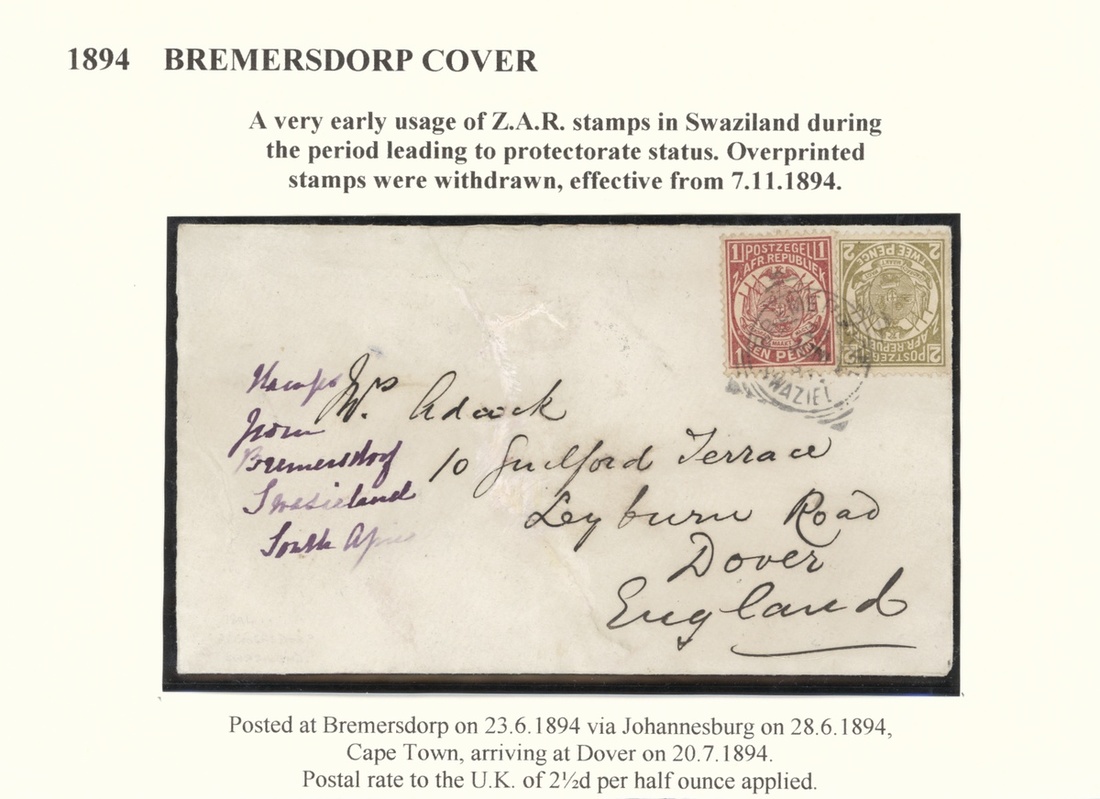 1894 BREMERSDORP COVER
A very early usage of Z.A.R. stamps in Swaziland during
the period leading to protectorate status. Overprinted
stamps were withdrawn, effective from 7.11.1894.
1 POSTZEGEL 1
Z. AFR. REPUBLIEK
1 EEN PENNY
2 TWEE PENCE 2
POSTZEGEL
AFR. REPUBLIEK
SWAZIEL
from
Bremersdorf
Swasieland
South
Mrs Adcock
10 Guilford Terrace
Leyburn Road
Dover
England
Posted at Bremersdorp on 23.6.1894 via Johannesburg on 28.6.1894,
Cape Town, arriving at Dover on 20.7.1894.
Postal rate to the U.K. of 2½d per half ounce applied.